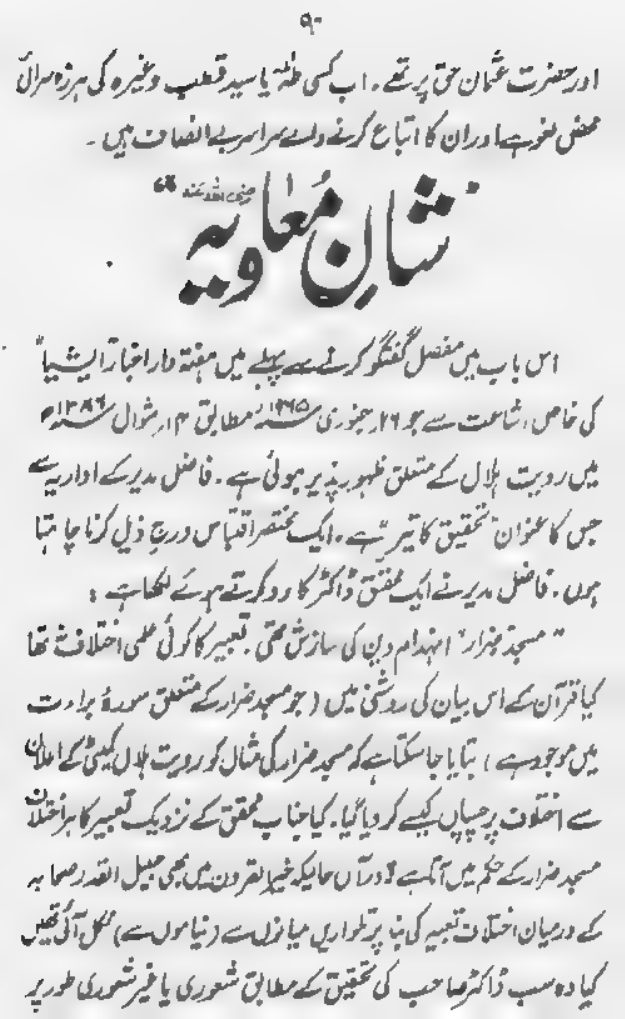 ۹۰
اور حضرت عثمان حق پر تھے ۔ اب کسی طٰہٰ یا سید قطب وغیرہ کی ہرزہ سرائی
محض لغو ہے اور ان کا اتباع کرنے والے سراسر بے انصاف ہیں ۔
"شانِ مُعاویہ رضی اللہ عنہ"
اس باب میں مفصل گفتگو کرنے سے پہلے میں ہفتہ وار اخبار "ایشیا"
کی خاص اشاعت سے جو ۲۶ر جنوری مطابق ۱۴ر شوال ۱۳۸۶ھ
میں رویت ہلال کے متعلق ظہور پذیر ہوئی ہے ۔ فاضل مدیر کے اداریہ سے
جس کا عنوان "تحقیق کا تیر" ہے ۔ ایک مختصر اقتباس درج ذیل کرنا چاہتا
ہوں ۔ فاضل مدیر نے ایک محقق ڈاکٹر کا رد کرتے ہوئے لکھا ہے :
"مسجد ضرار" انہدام دین کی سازش تھی ۔ تعبیر کا کوئی علمی اختلاف نہ تھا
کیا قرآن کے اس بیان کی روشنی میں (جو مسجد ضرار کے متعلق سورۂ براءت
میں موجود ہے) بتایا جا سکتا ہے کہ مسجد ضرار کی مثال کو رویت ہلال کمیٹی کے اعلان
سے اختلاف پر چسپاں کیسے کر دیا گیا ۔ کیا جناب محقق کے نزدیک تعبیر کا ہر اختلاف
مسجد ضرار کے حکم میں آتا ہے ؟ درآں حالیکہ خیر القرون میں بھی جلیل القدر صحابہ
کے درمیان اختلاف تعبیر کی بنا پر تلواریں میانوں سے (نیاموں سے) نکل آئی تھیں
کیا وہ سب ڈاکٹر صاحب کی تحقیق کے مطابق شعوری یا غیر شعوری طور پر